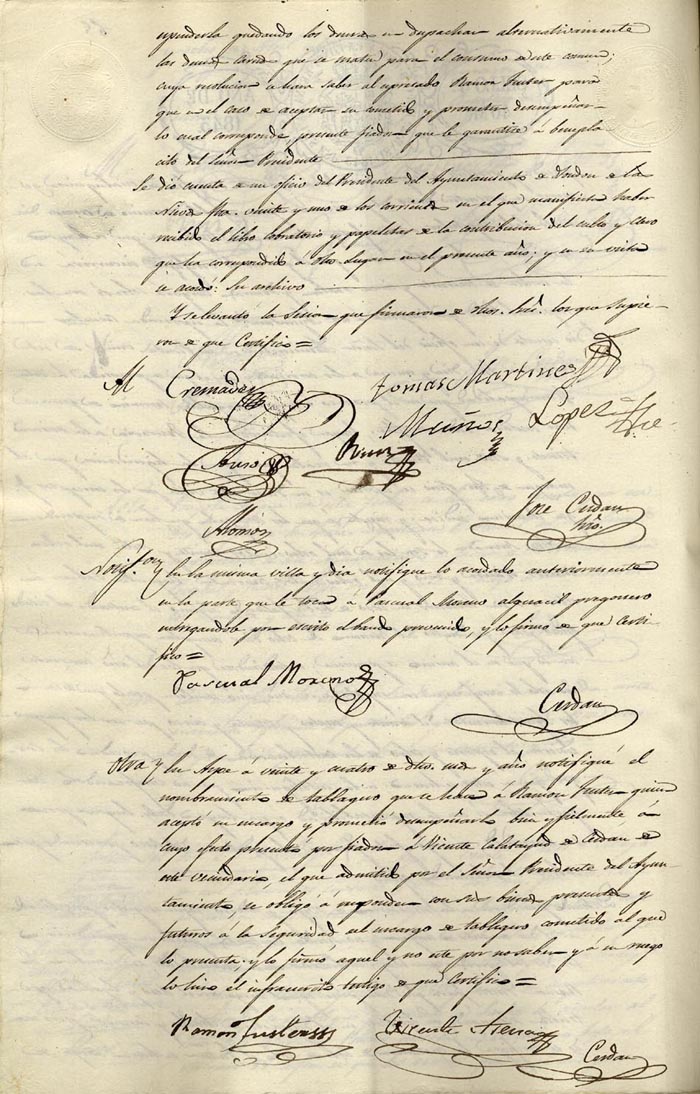 quedando los demas en despachar alternativamente
las demas carnes que se maten para el consumo de este comun;
cuya resolucion se hara saber al espresado Ramon Fuster para
que en el caso de aceptar su cometido y prometer desempeñar-
lo cual corresponde presente fiador que le garantice á benepla
cito del Señor Presidente
Se dió cuenta de un oficio del Presidente del Ayuntamiento de Hondon de las
Nieves fha. veinte y uno de los corrientes en el que manifiesta haber
recibido el libro cobratorio y papeletas de la contribucion del culto y clero
que ha correspondido á dho. Lugar en el presente año; y en su vista
se acordó: Su archivo
Y se levantó la Sesion que firmaron de dhos. Sres. los que supie-
ron de que Certifico=
Al Cremades Tomas Martinez
Muñoz Lopez
Jose Cerdan
Srio.
Alemañ
Notif.on En la misma villa y dia notifique lo acordado anteriormente
en la parte que le toca á Pascual Moreno alguacil pregonero
entregandole por escrito el bando prevenido, y lo firmó de que Certi-
fico=
Pascual Moreno
Cerdan
Otra En Aspe á veinte y cuatro de dhos. mes y año notifiqué el
nombramiento de tablagero que se hace á Ramon Fuster quien
aceptó su encargo y prometió desempeñarlo bien y fielmente á
cuyo efecto presentó por fiador á Vicente Calatayud de Cerdan de
este vecindario, el que admitido por el Señor Presidente del Ayun-
tamiento, se obligó á responder con sus bienes presentes y
futuros á la seguridad del encargo de tablagero cometido al que
lo presenta, y lo firmó aquel y no este por no saber y á su ruego
lo hizo el infraescrito testigo de que Certifico=
Ramon Fuster Vicente
Cerdan